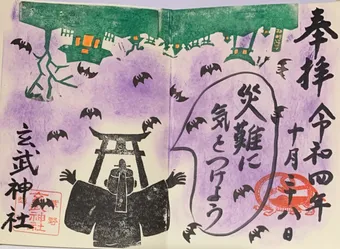 奉拝
令和四年
十月
災難に
気をつけよう
玄武神社